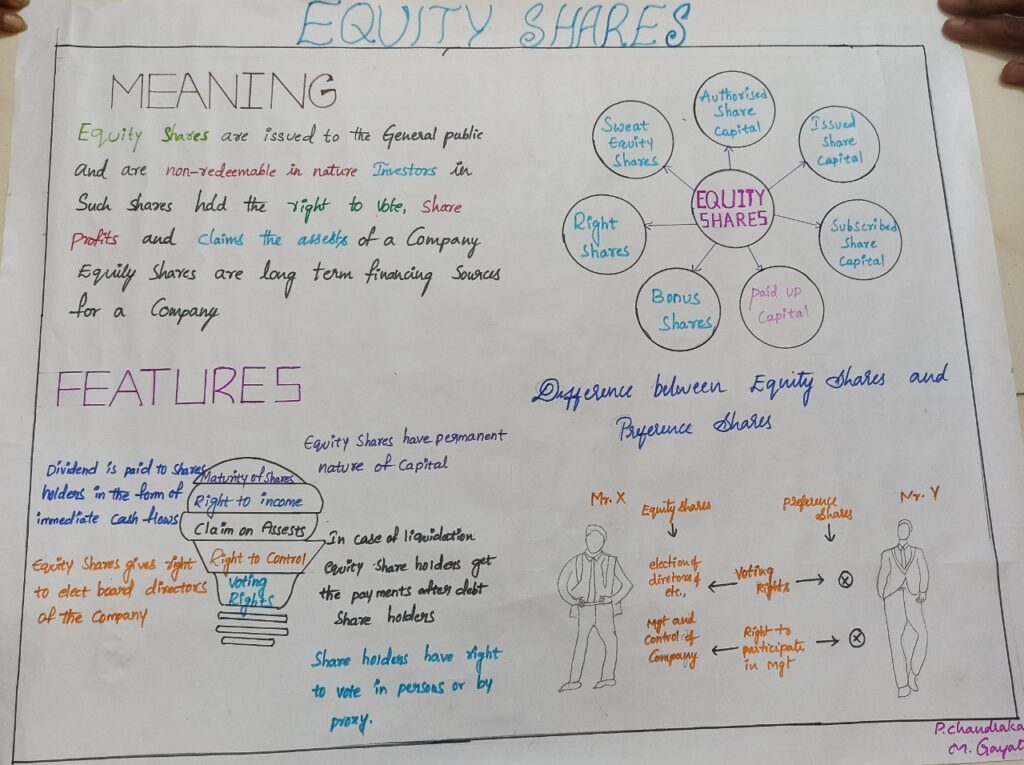 EQUITY SHARES
MEANING
Equity Shares are issued to the General public
and are non-redeemable in nature Investors in
Such shares hdd the right to vote, Share
Profits and claims the assests of a Company
Equity Shares are long term financing Sources
for a Company
Authorised
Share
Capital
Issued
Share
Capital
Subscribed
Share
Capital
Paid up
Capital
Bonus
Shares
Right
Shares
Sweat
Equity
Shares
EQUITY
SHARES
FEATURES
Equity Shares have permanent
nature of Capital
Dividend is paid to Shares
holders in the form of
immediate cash flows
Maturity of Shares
Right to income
Claim on Assests
Right to Control
Voting
Rights
Equity Shares gives right
to elect board directors
of the Company
In case of liquidation
equity share holders get
the payments after debt
Share holders
Share holders have right
to vote in persons or by
proxy.
Difference between Equity Shares and
Preference Shares
Mr. X
Equity shares
preference
Shares
Mr. Y
election of
diretors of
etc.,
Voting
Rights
Mgt and
control of
Company
Right to
participate
in Mgt
P.Chandraka
M. Gayat